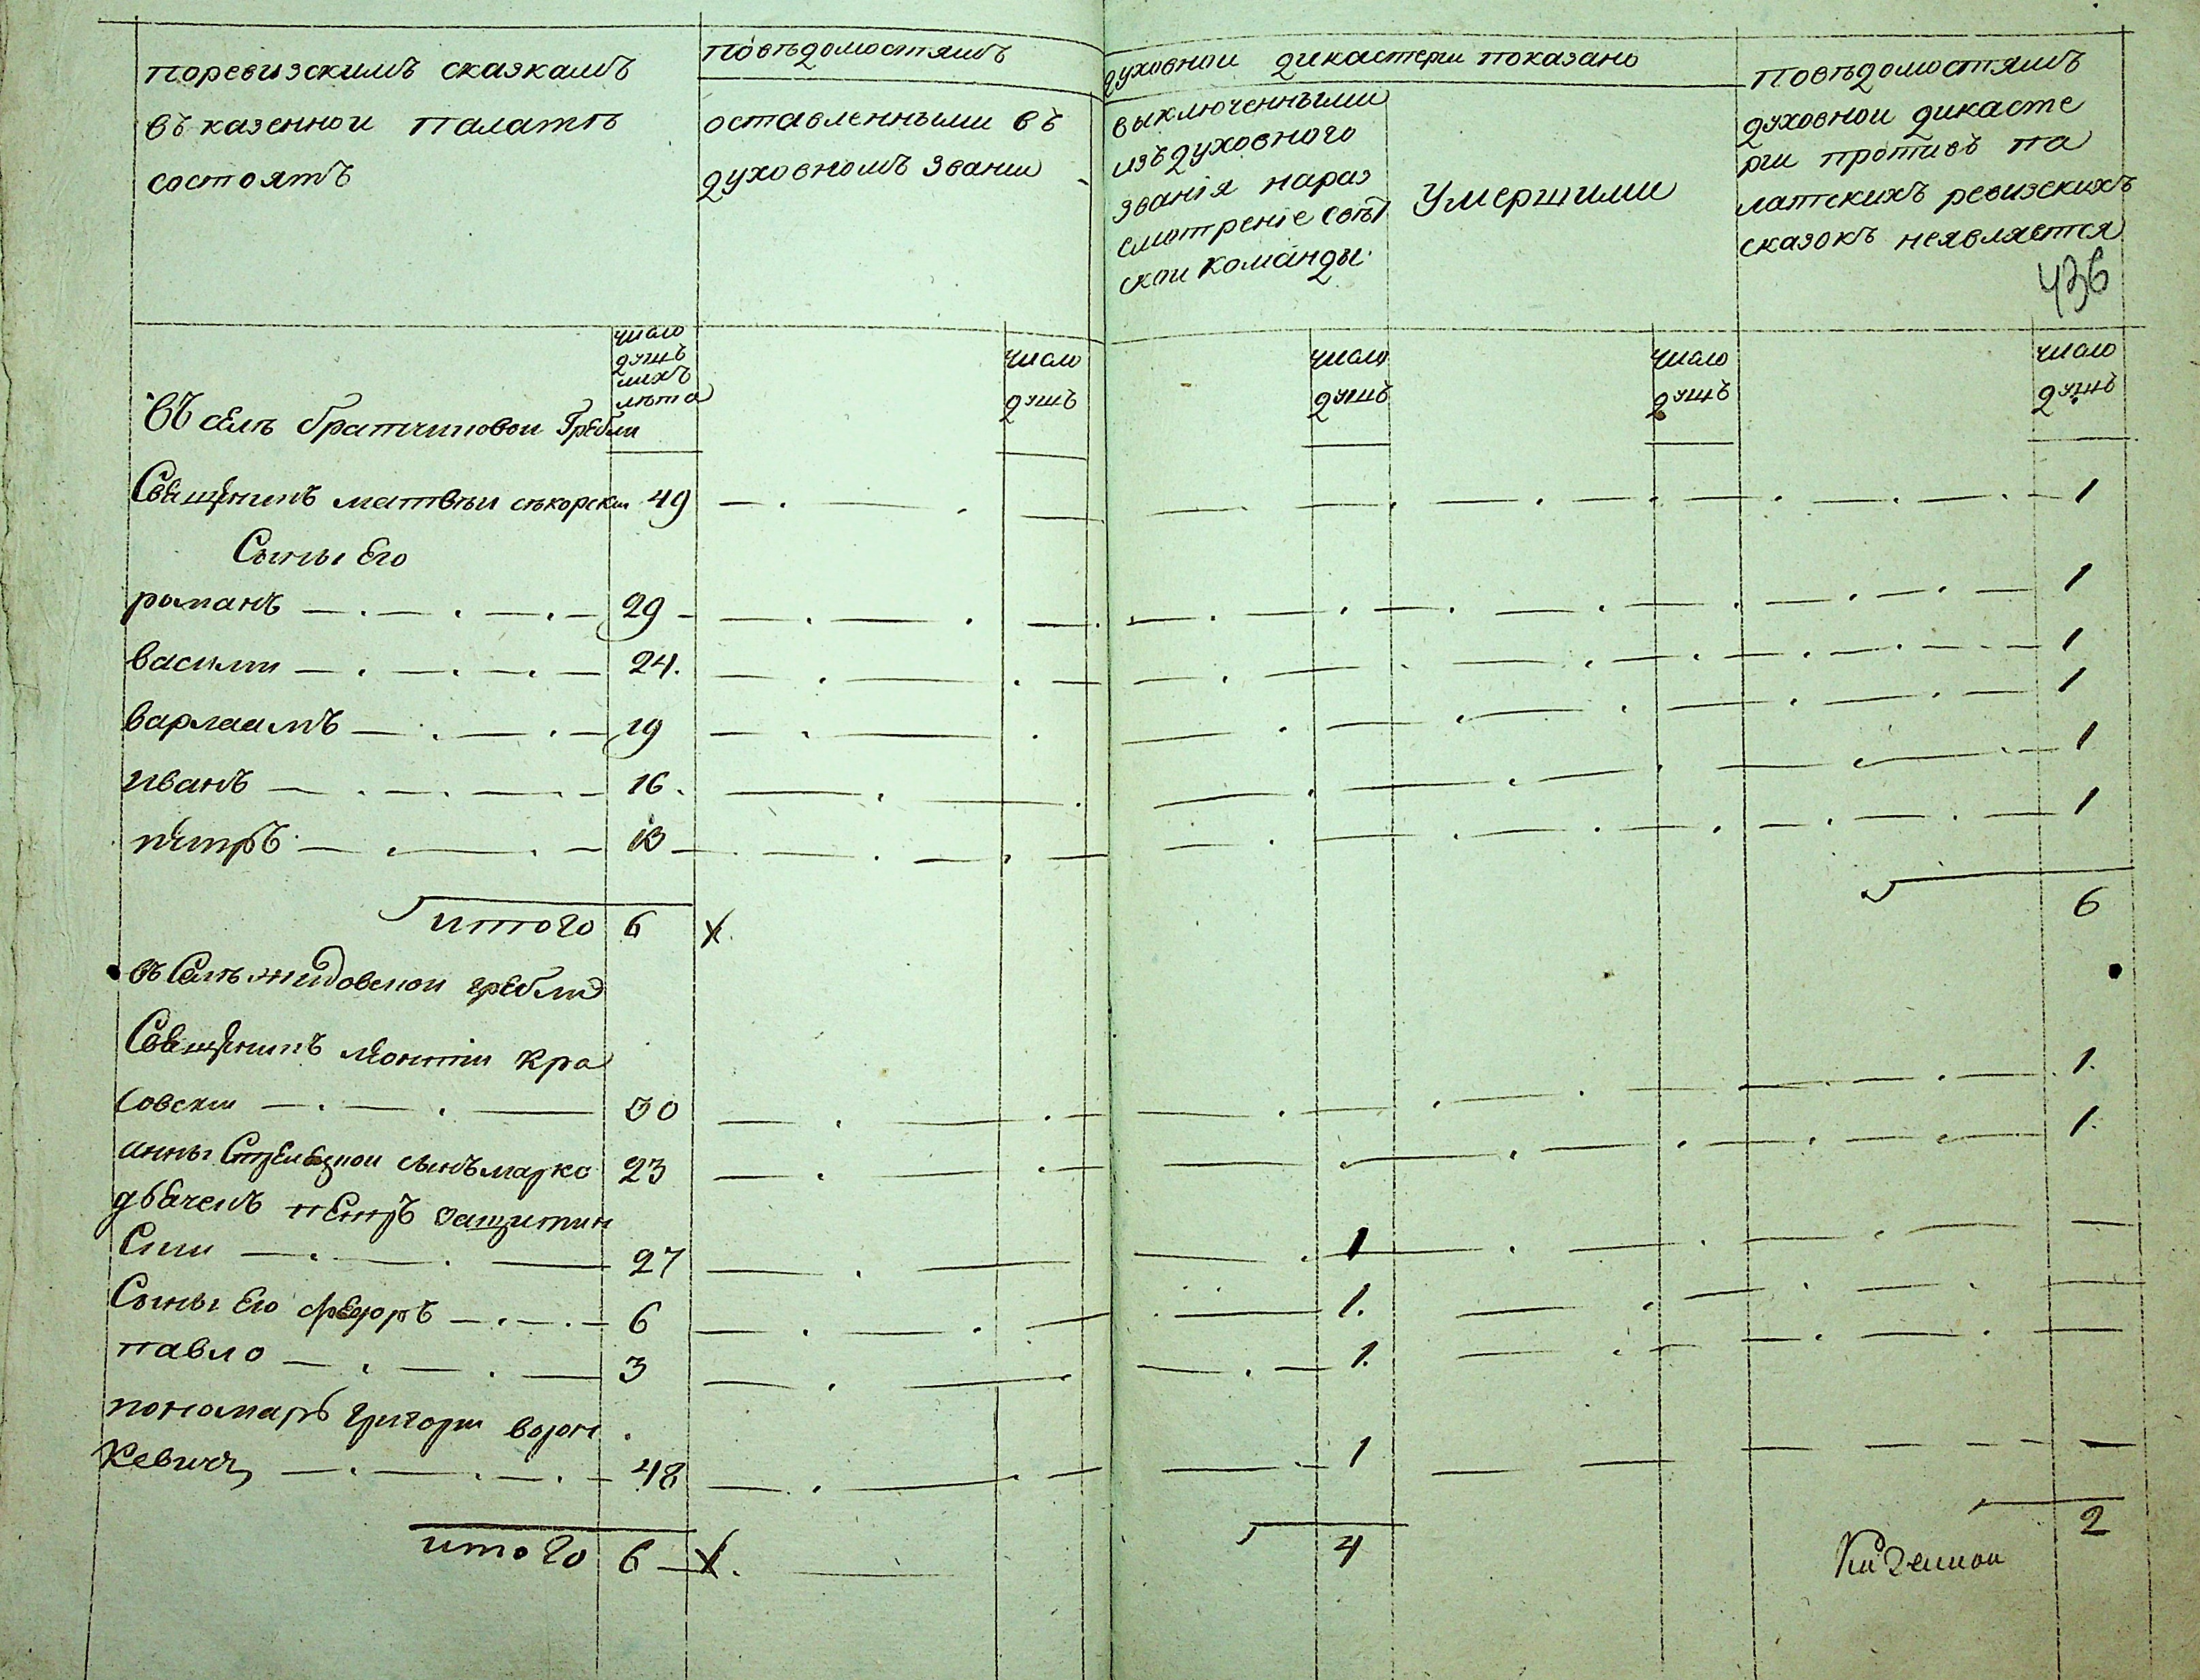 поревизскимъ сказкамъ
въ казеннои палатѣ
состоятъ
повѣдомостямъ
оставленными въ
духовномъ звании
духовнои дикастерии показано
выключенными
изъ духовного
званія нараз
смотреніе свѣт
скои команды.
Умершими
повѣдомостямъ
духовнои дикасте
рии противъ па
латскихъ ревизскихъ
сказокъ неявляется
436
число
душъ
ихъ
лѣта
число
душъ
число
душъ
число
душъ
число
душъ
Въ селѣ братчиковои Гребли
Священникъ матвѣи 49 1
Сыны Его
романъ 29 1
василии 24. 1
варлаамъ 19 1
иванъ 16. 1
петръ 13 1
итого 6 6
въ Селѣ жидовскои гребли
Священникъ леонтии кра
совскии 30 1.
анны сынъ марко 23 1.
дьячекъ петръ защитин
скии 27 1
Сыны Его федоръ 6 1.
павло 3 1.
пономаръ григории ворон
кевичъ 48 1
итого 6 4 2